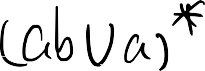 (ab∪a)*